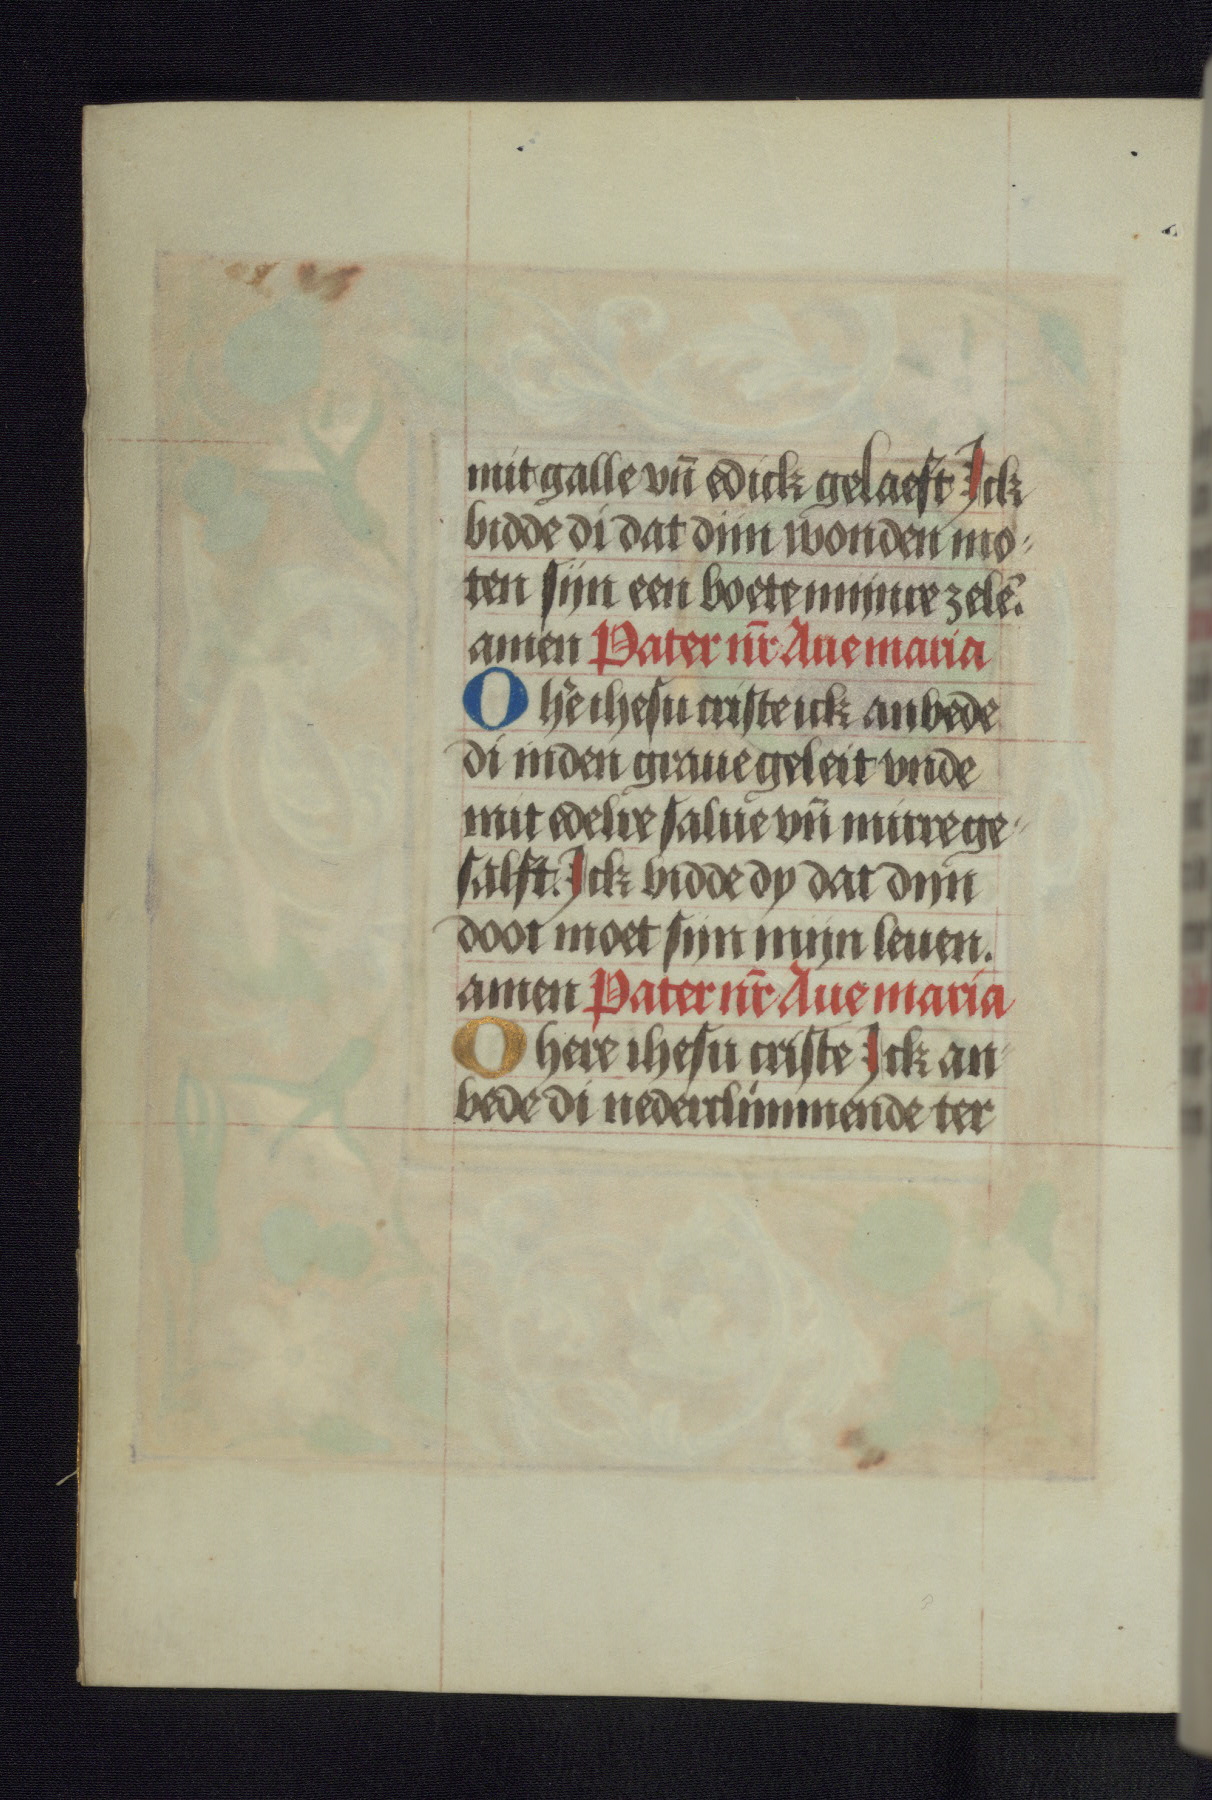 mit galle vn̄ edick gelaest Ick
bidde di dat dijn wonden mo-
ten sijn een boete mijnre zelē.
amen Pater nr̄ Aue maria
O hr̄e ihesu criste ick anbede
di inden graue geleit vnde
mit edelre salue vn̄ mirre ge-
salft. Ick bidde dy dat dijn
doot moet sijn mijn leuen.
amen Pater nr̄ Aue maria
O here ihesu criste Ick an-
bede di nederclimmende ter